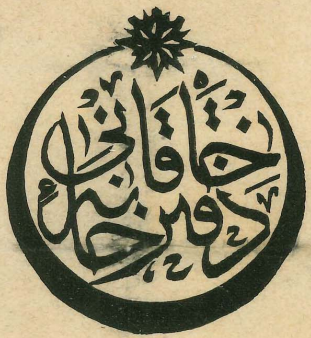 دفترخانه
خاقانی